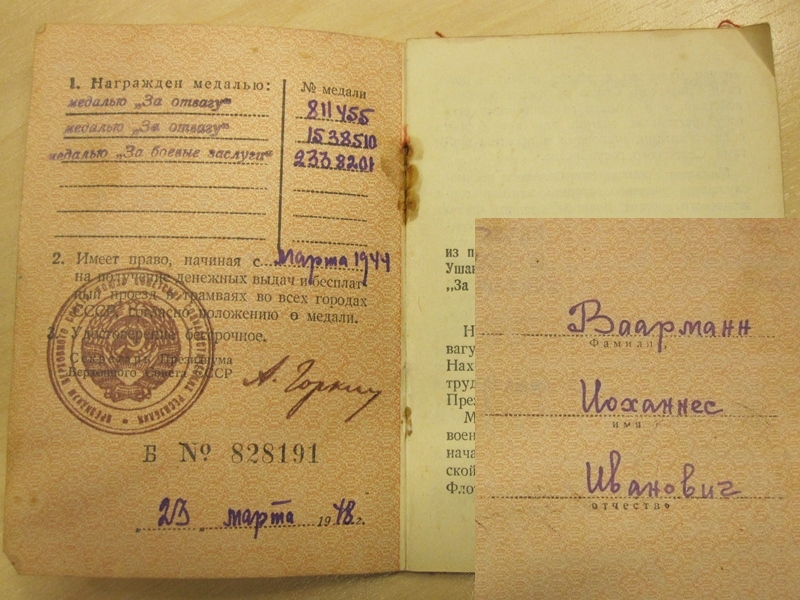 1. Награжден медалью:
№ медали
медалью „За отвагу“
811455
медалью „За отвагу“
1538510
медалью „За боевые заслуги“
2338201
2. Имеет право, начиная с марта 1944
на получение денежных выдач и бесплат-
ный проезд в трамваях во всех городах
СССР, согласно положению о медали.
3. Удостоверение бессрочное.
Секретарь Президиума
Верховного Совета СССР
А. Горкин
Б № 828191
23 марта 1948 г.
из п
Ушак
„За
Н
вагу
Нах
труд
През
М
воен
нача
ской
Фло
Ваарманн
Фамилия
Иоханнес
имя
Иванович
отчество